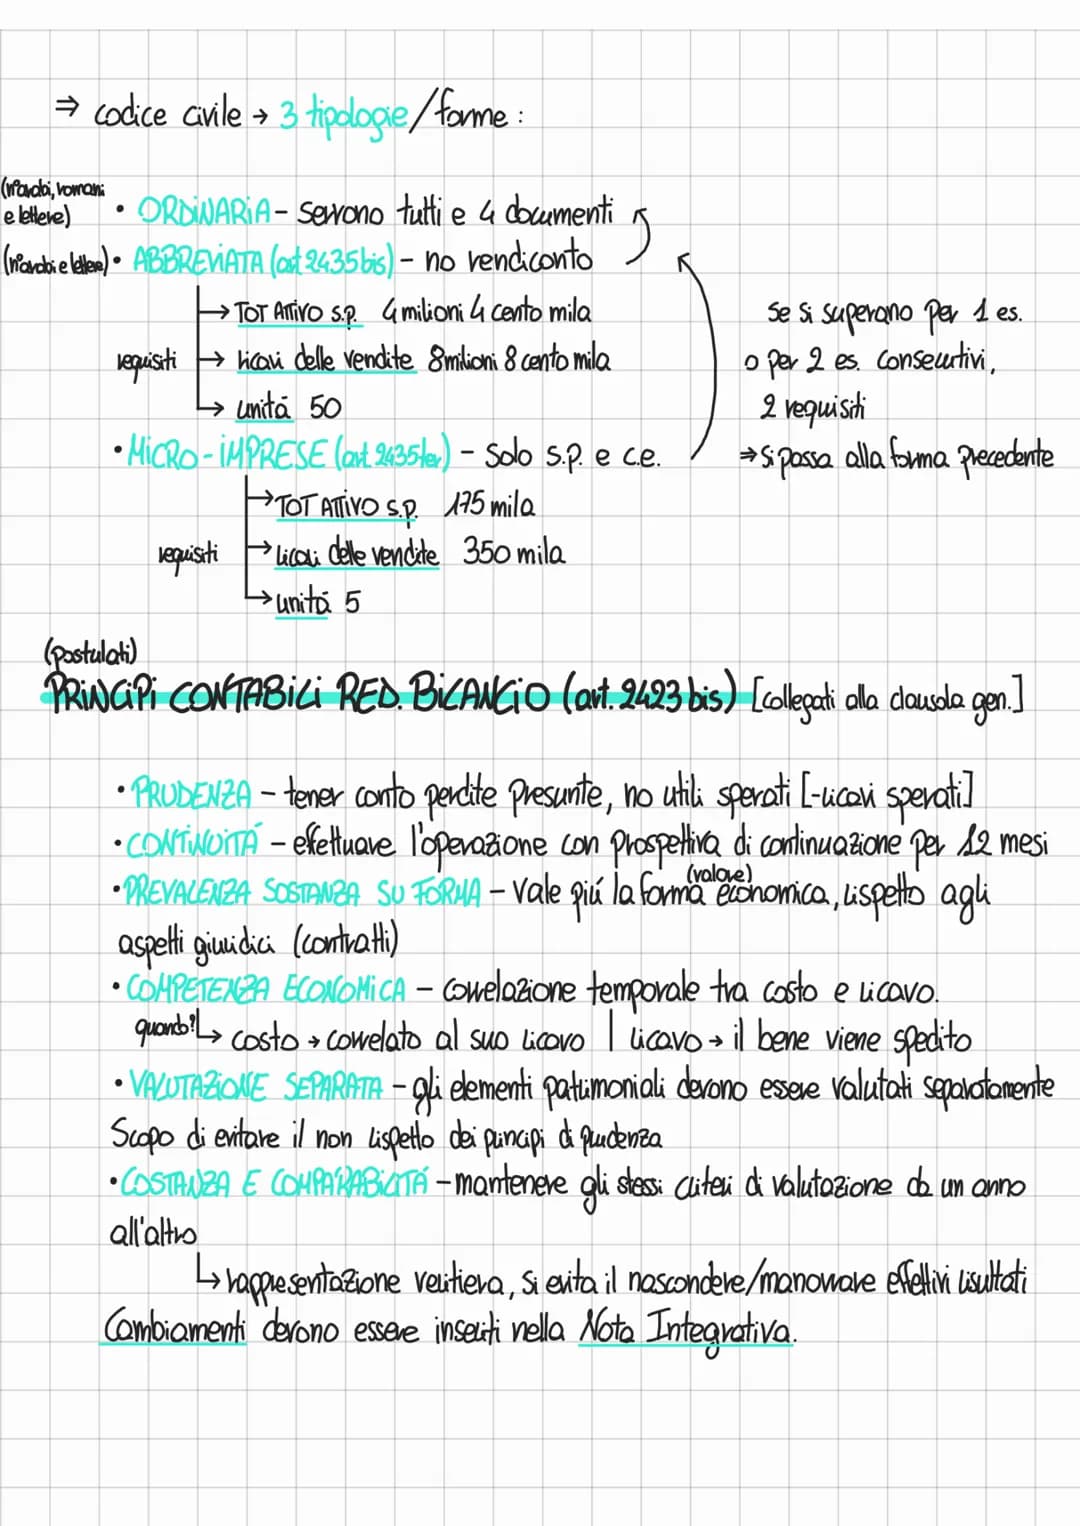 ⇒ codice civile → 3 tipologie/forme :
(n°arabi, romani
e lettere)
• ORDINARIA - servono tutti e 4 documenti
(n°arabi e lettere) • ABBREVIATA (art 2435 bis) - no rendiconto
→ TOT ATTIVO S.P. 4 milioni 4 cento mila
requisiti → ricavi delle vendite 8 milioni 8 cento mila
→ unitá 50
Se si superano per 1 es.
o per 2 es. consecutivi,
2 requisiti
⇒ si passa alla forma precedente
• MICRO-IMPRESE (art. 2435 ter) - solo s.p. e c.e.
→ TOT ATTIVO S.P. 175 mila
requisiti → ricavi delle vendite 350 mila
→ unitá 5
(postulati)
PRINCIPI CONTABILI RED. BILANCIO (art. 2423 bis) [collegati alla clausola gen.]
• PRUDENZA - tener conto perdite presunte, no utili sperati [-ricavi sperati]
• CONTINUITÁ - effettuare l'operazione con prospettiva di continuazione per 12 mesi
(valore)
• PREVALENZA SOSTANZA SU FORMA - Vale piú la forma economica, rispetto agli
aspetti giuridici (contratti)
• COMPETENZA ECONOMICA - correlazione temporale tra costo e ricavo.
quando? → costo → correlato al suo ricavo | ricavo → il bene viene spedito
• VALUTAZIONE SEPARATA - gli elementi patrimoniali devono essere valutati separatamente
Scopo di evitare il non rispetto dei principi di prudenza
• COSTANZA E COMPARABILITÁ - mantenere gli stessi criteri di valutazione da un anno
all'altro
→ rappresentazione veritiera, si evita il nascondere/manovrare effettivi risultati
Cambiamenti devono essere inseriti nella Nota Integrativa.